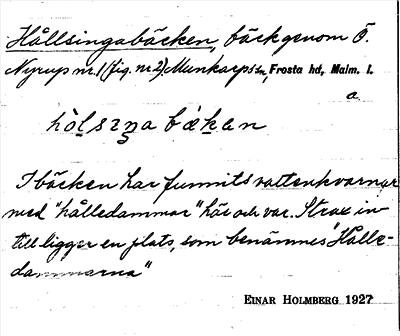 Hållsingabäcken, bäck genom Ö.
Nyrup nr. 1 (fig. nr 2), Munkarps sn, Frosta hd, Malm. l.
a.
hòlsiŋa bǽkan
I bäcken har funnits vattenkvarnar
med "hålledammar" här och var. Strax in-
till ligger en plats, som benämnes "Hålle-
dammarna"
EINAR HOLMBERG 1927